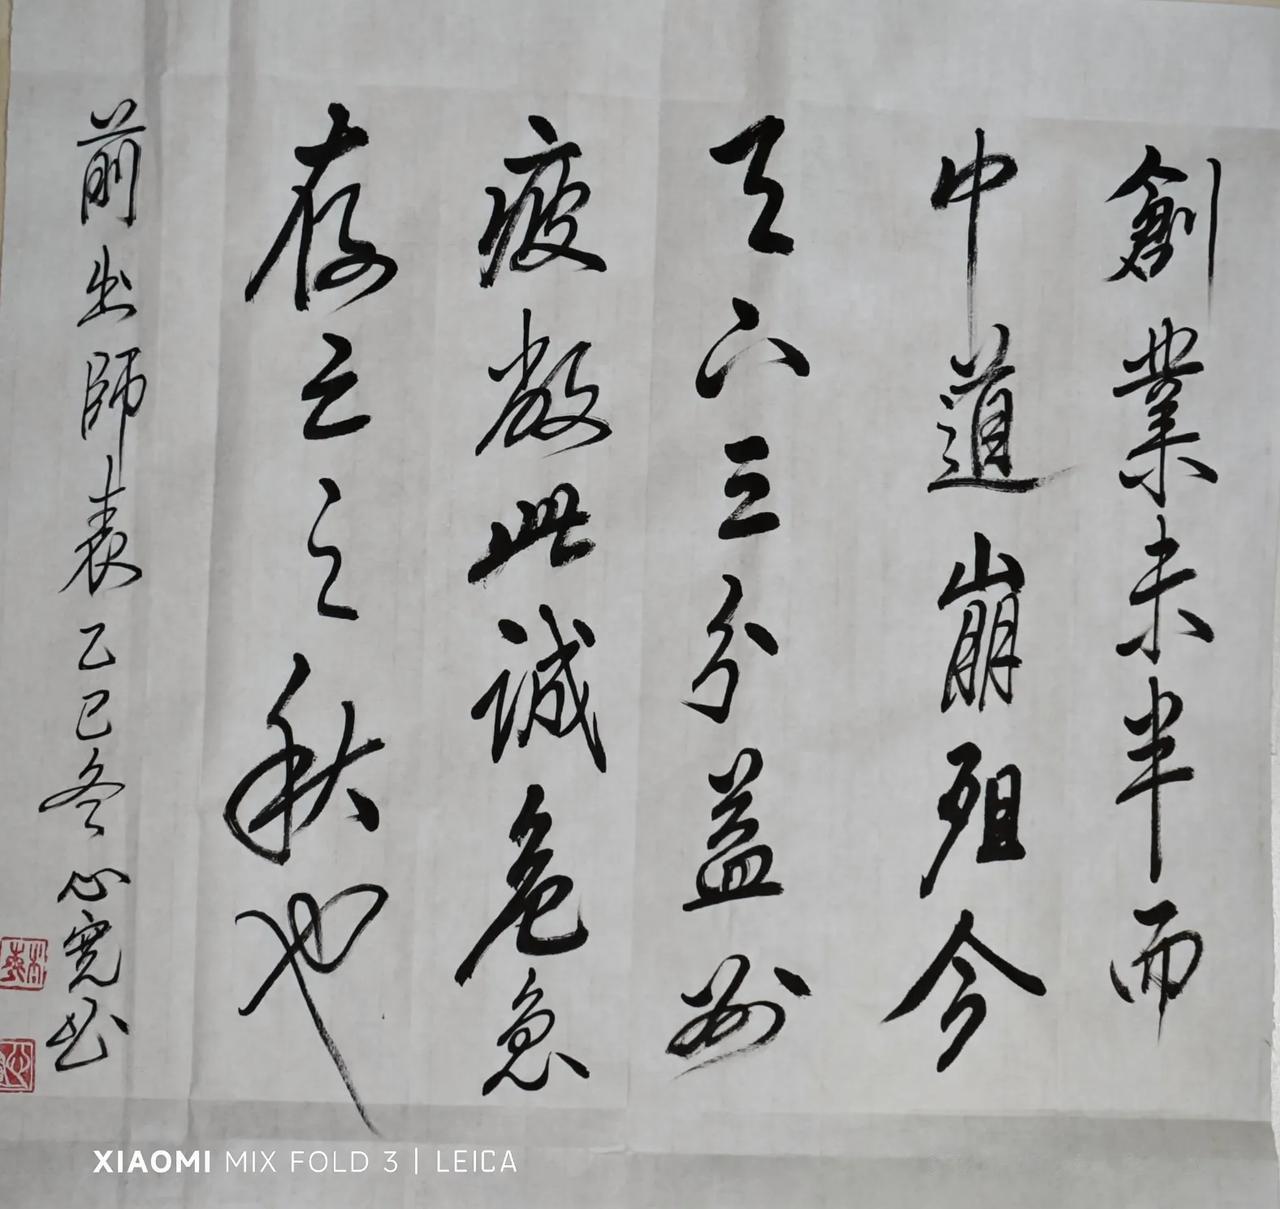 創業未半而
中道崩殂今
天下三分益州
疲敝此誠危急
存亡之秋也
前出師表乙巳冬心寬书
XIAOMI MIX FOLD 3 | LEICA